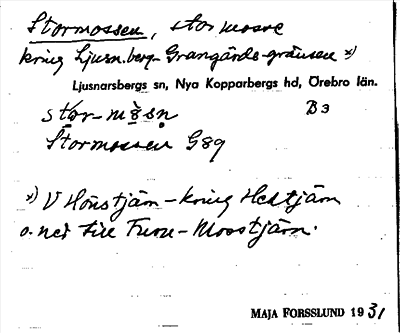 Stormossen, stor mosse
kring Ljusn.berg-Grangärde-gränsen x)
Ljusnarsbergs sn, Nya Kopparbergs hd, Örebro län.
stor-måsn B3
Stormossen G89
x) V Hönstjärn – kring Hästjärn
o. ned till Mosstjärn.
MAJA FORSSLUND 1931